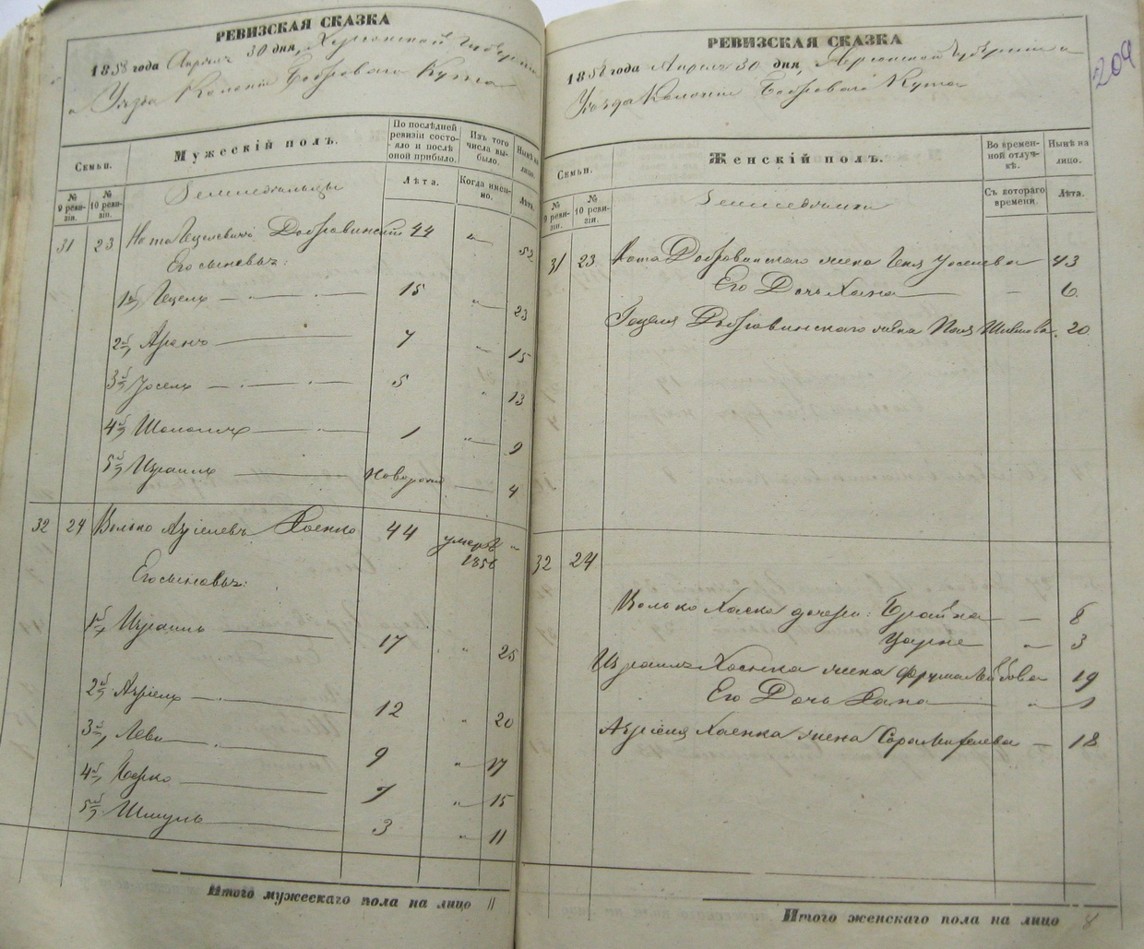 РЕВИЗСКАЯ СКАЗКА
1858 года Апреля 30 дня, Херсонской Губернии
Уезда Колонии Боброваго Кута
Семьи.
Мужескій полъ.
По послѣдней ревизіи состояло и послѣ оной прибыло.
Изъ того числа выбыло.
Нынѣ на лицо.
№ 9 ревизіи.
№ 10 ревизіи.
Лѣта.
Когда именно.
Лѣта.
Земледельцы
31 23 Нота Гецелевичъ Добровинскій 44 " 52
Его сыновья:
1й Гецель 15 " 23
2й Аронъ 7 " 15
3й Иосель 5 " 13
4й Шоломъ 1 " 9
5й Израиль новорож 4
32 24 Волько Азріелевъ Хаенко 44 умеръ 1856 "
Его сыновья:
1й Израиль 17 " 25
2й Азріель 12 " 20
3й Леви 9 " 17
4й 7 " 15
5й Шмуль 3 " 11
Итого мужескаго пола на лицо 11
РЕВИЗСКАЯ СКАЗКА
209
1858 года Апреля 30 дня, Херсонской Губернии
Уезда Колонии Боброваго Кута
Семьи.
Женскій полъ.
Во временной отлучкѣ.
Нынѣ на лицо.
№ 9 ревизіи.
№ 10 ревизіи.
Съ котораго времени.
Лѣта.
Земледельцы
31 23 Нота Добровинскаго жена Геня Иоселева 43
Его Дочь Хана — 6
Гецеля Добровинскаго жена Песя 20
32 24
Волько Хаенка дочери: Брайна — 8
Царне " 3
Израиля Хаенка жена Фрума Лейбова 19
Его Дочь Хана " 1
Азріеля Хаенка жена Сора — 18
Итого женскаго пола на лицо 8